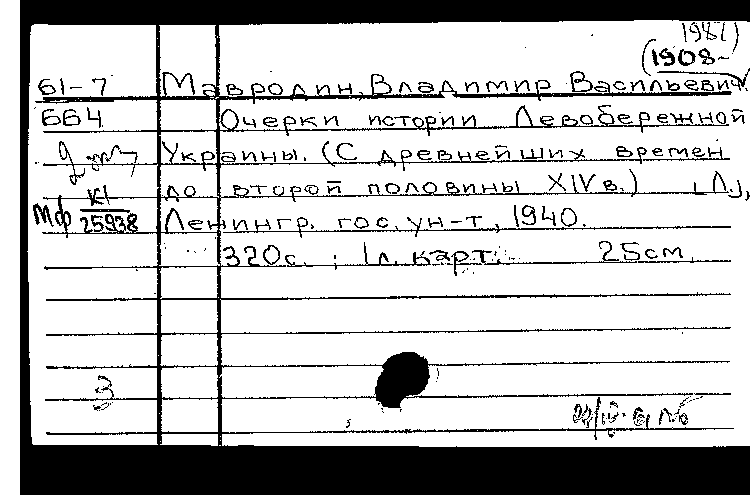 1987)
(1908-
61-7 Мавродин, Владимир Васильевич
664 Очерки истории Левобережной
2 экз Украины. (С древнейших времен
до второй половины XIV в.) [Л.],
Мф К1/25938 Ленингр. гос. ун-т, 1940.
320с. ; 1 л. карт. 25см
3